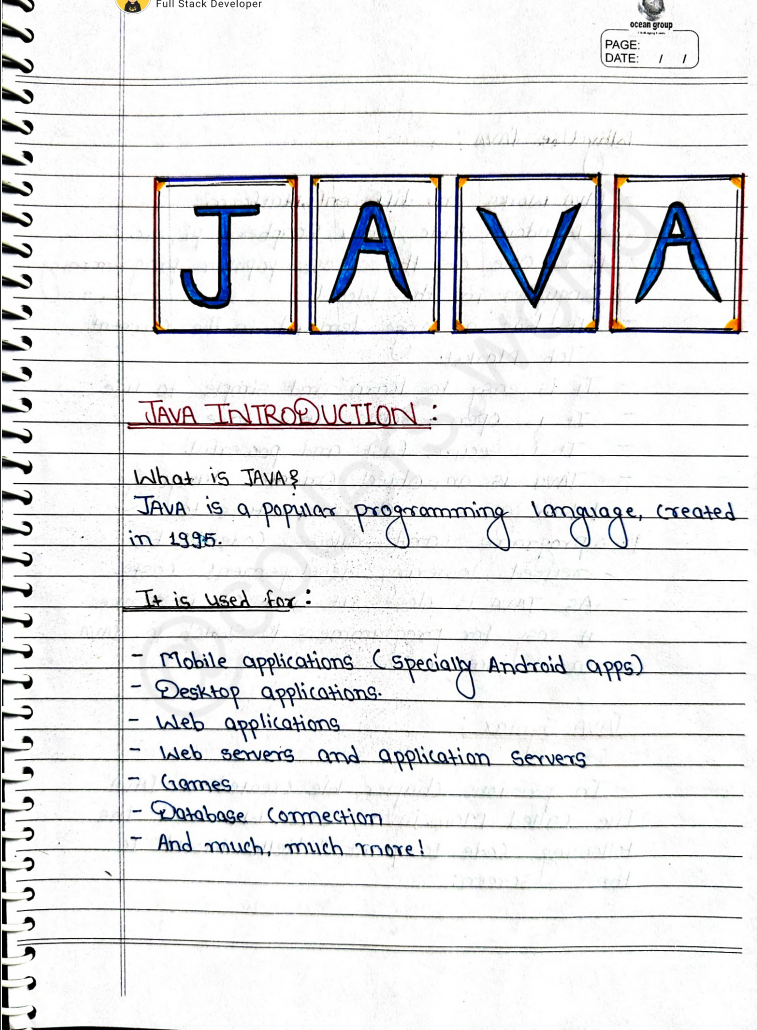 Full Stack Developer
ocean group
PAGE:
DATE: / /
JAVA
JAVA INTRODUCTION :
What is JAVA?
JAVA is a popular programming language, created
in 1995.
It is used for :
- Mobile applications (specially Android apps)
- Desktop applications.
- Web applications
- Web servers and application servers
- Games
- Database connection
- And much, much more!
@coders.world